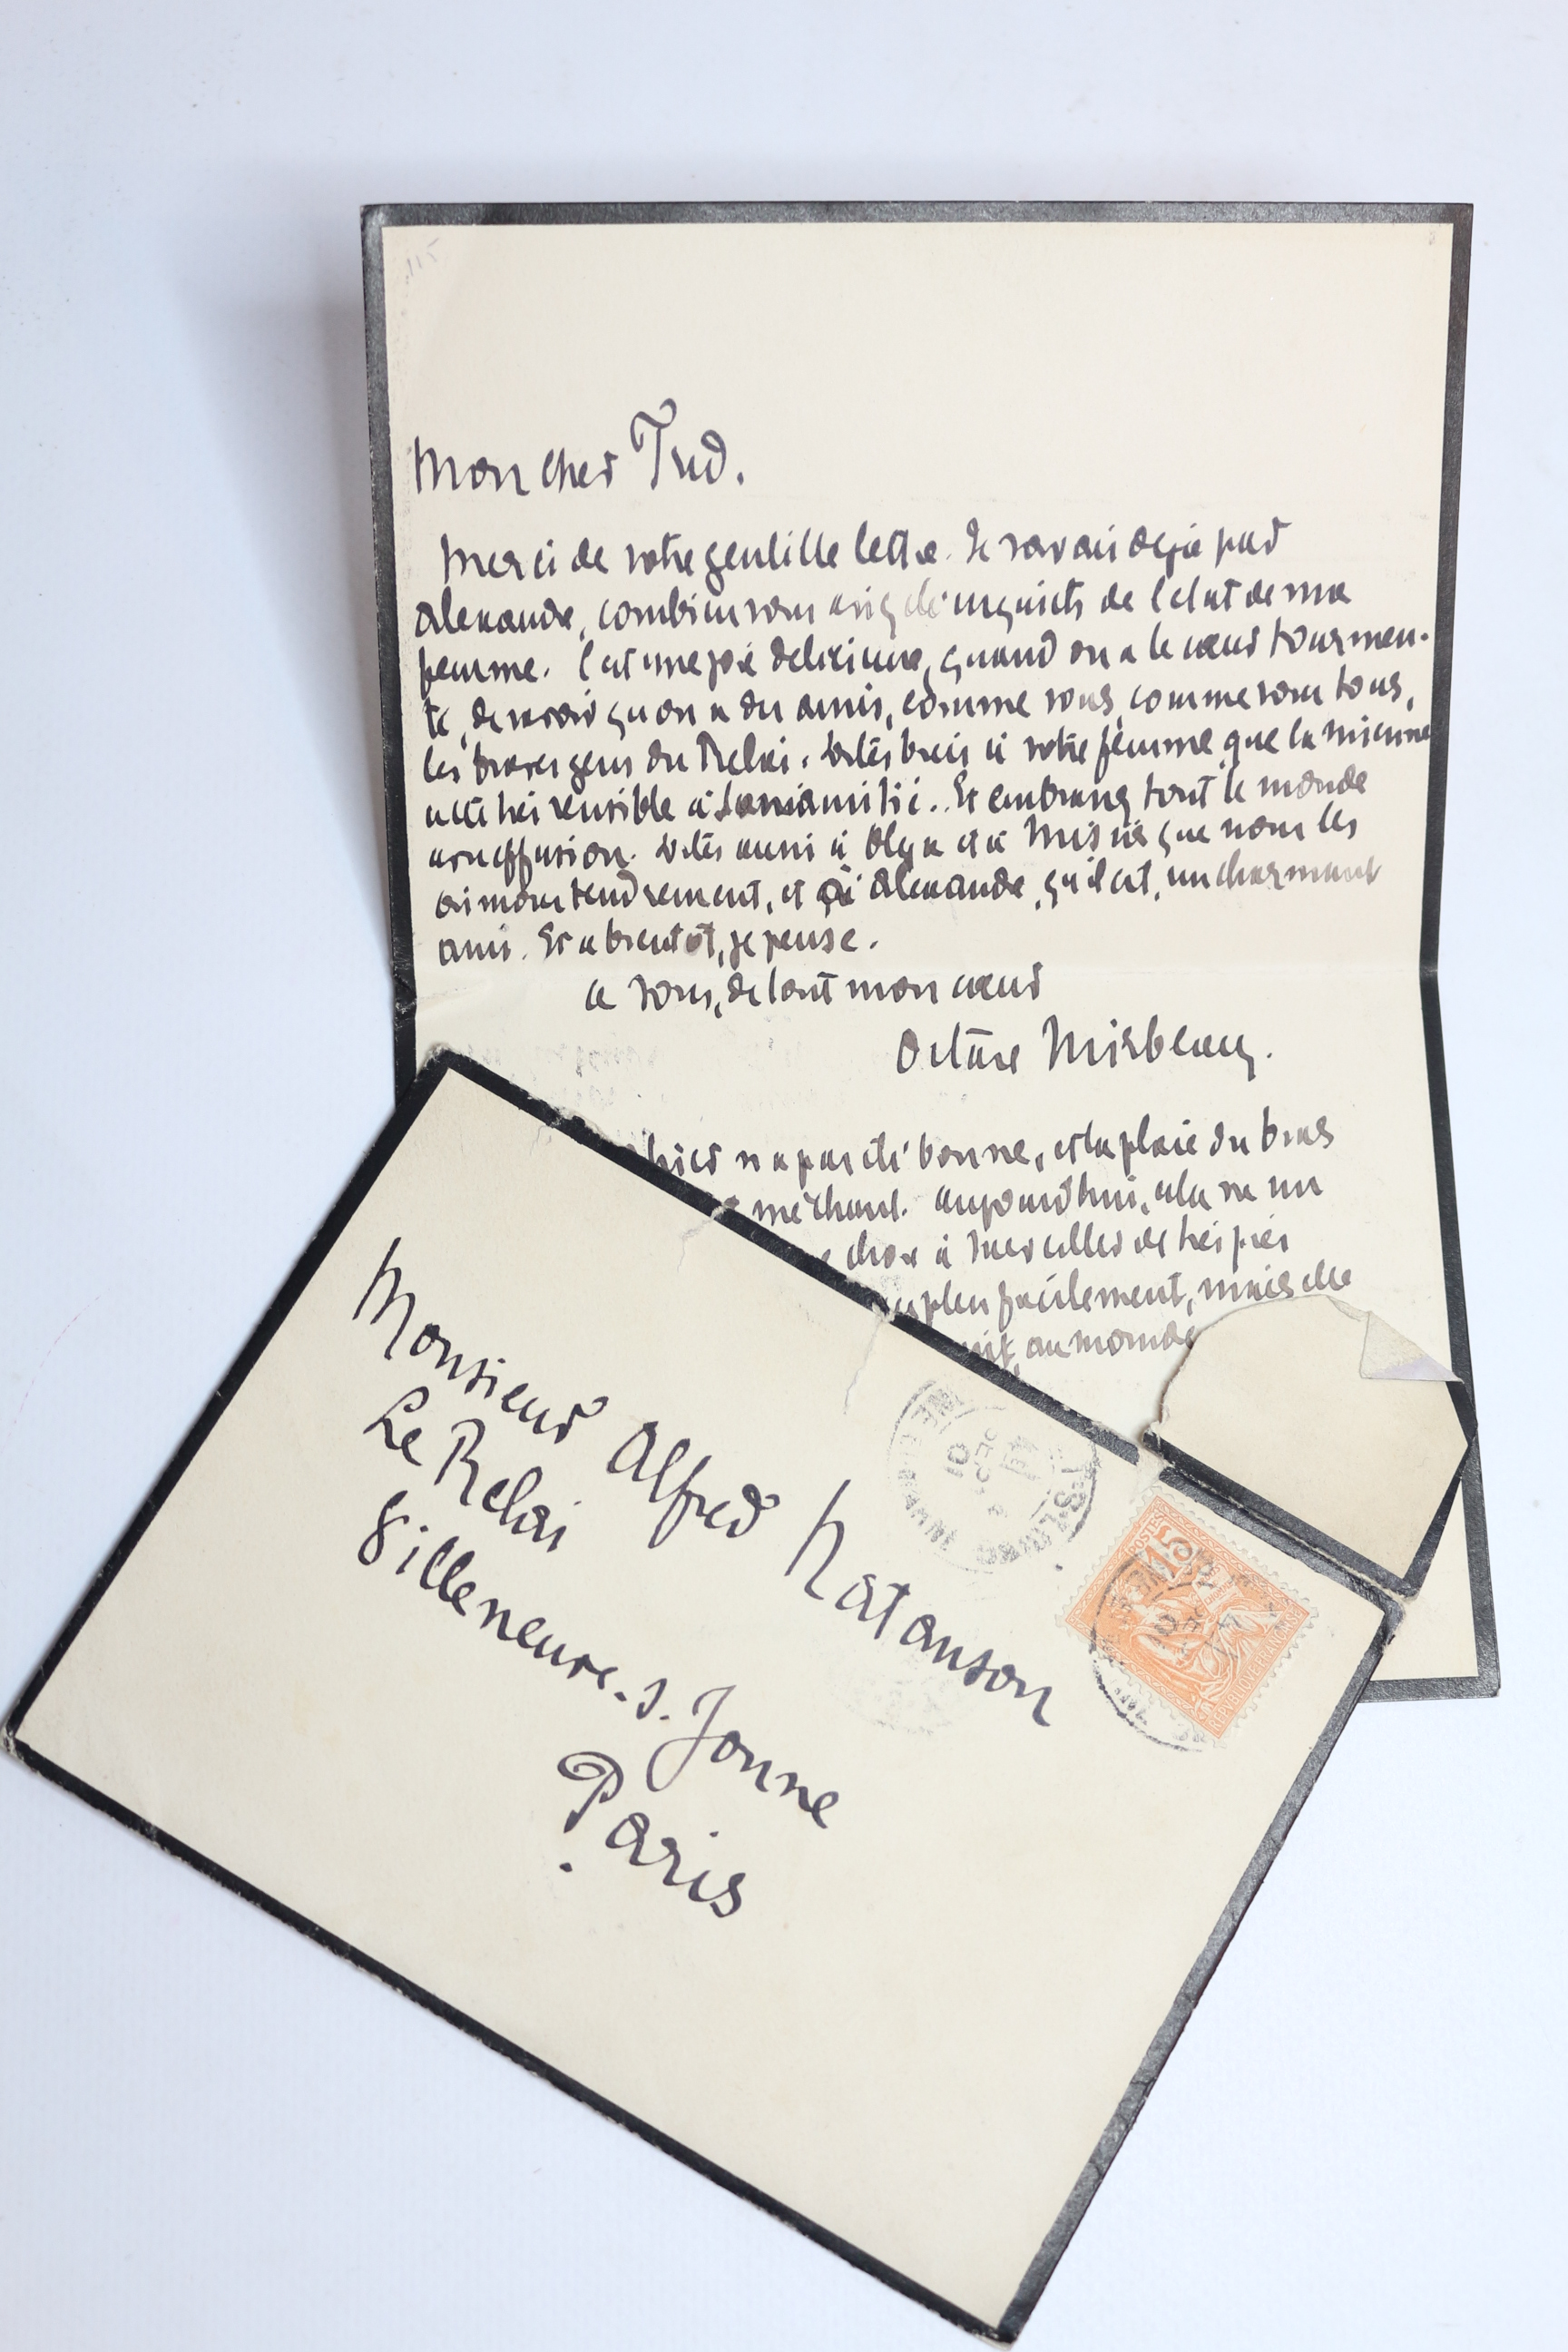 115
Mon cher Fred.
Merci de votre gentille lettre. Je savais déjà par
Alexandre, combien vous aviez été inquiets de l'état de ma
femme. C'est une joie délicieuse, quand on a le cœur tourmen-
té, de savoir qu'on a des amis, comme vous, comme vous tous,
les braves gens du Relai. Dites bien à votre femme que la mienne
a été très sensible à son amitié. Et embrassez tout le monde
avec effusion. Dites aussi à Olga et à Misia que nous les
aimons tendrement, et à Alexandre, qu'il est un charmant
ami. Et à bientôt, je pense.
à vous, de tout mon cœur
Octave Mirbeau.
hier n'a pas été bonne, et la plaie du bras
méchant. aujourd'hui, cela va un
chose à Marcelles de très près
plus facilement, mais elle
au monde
Monsieur Alfred Natanson
Le Relai
Villeneuve-s. Yonne
Paris
POSTES
15
REPUBLIQUE FRANÇAISE